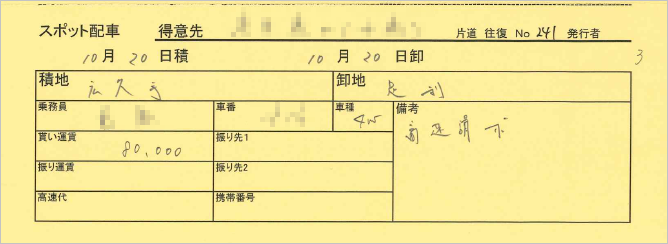 スポット配車 得意先 片道 往復 No 241 発行者
10月20日積 10月20日卸 3
積地 広久手 卸地 足利
乗務員 車番 車種 4W 備考
貰い運賃 80,000 振り先1
振り運賃 振り先2
高速代 携帯番号